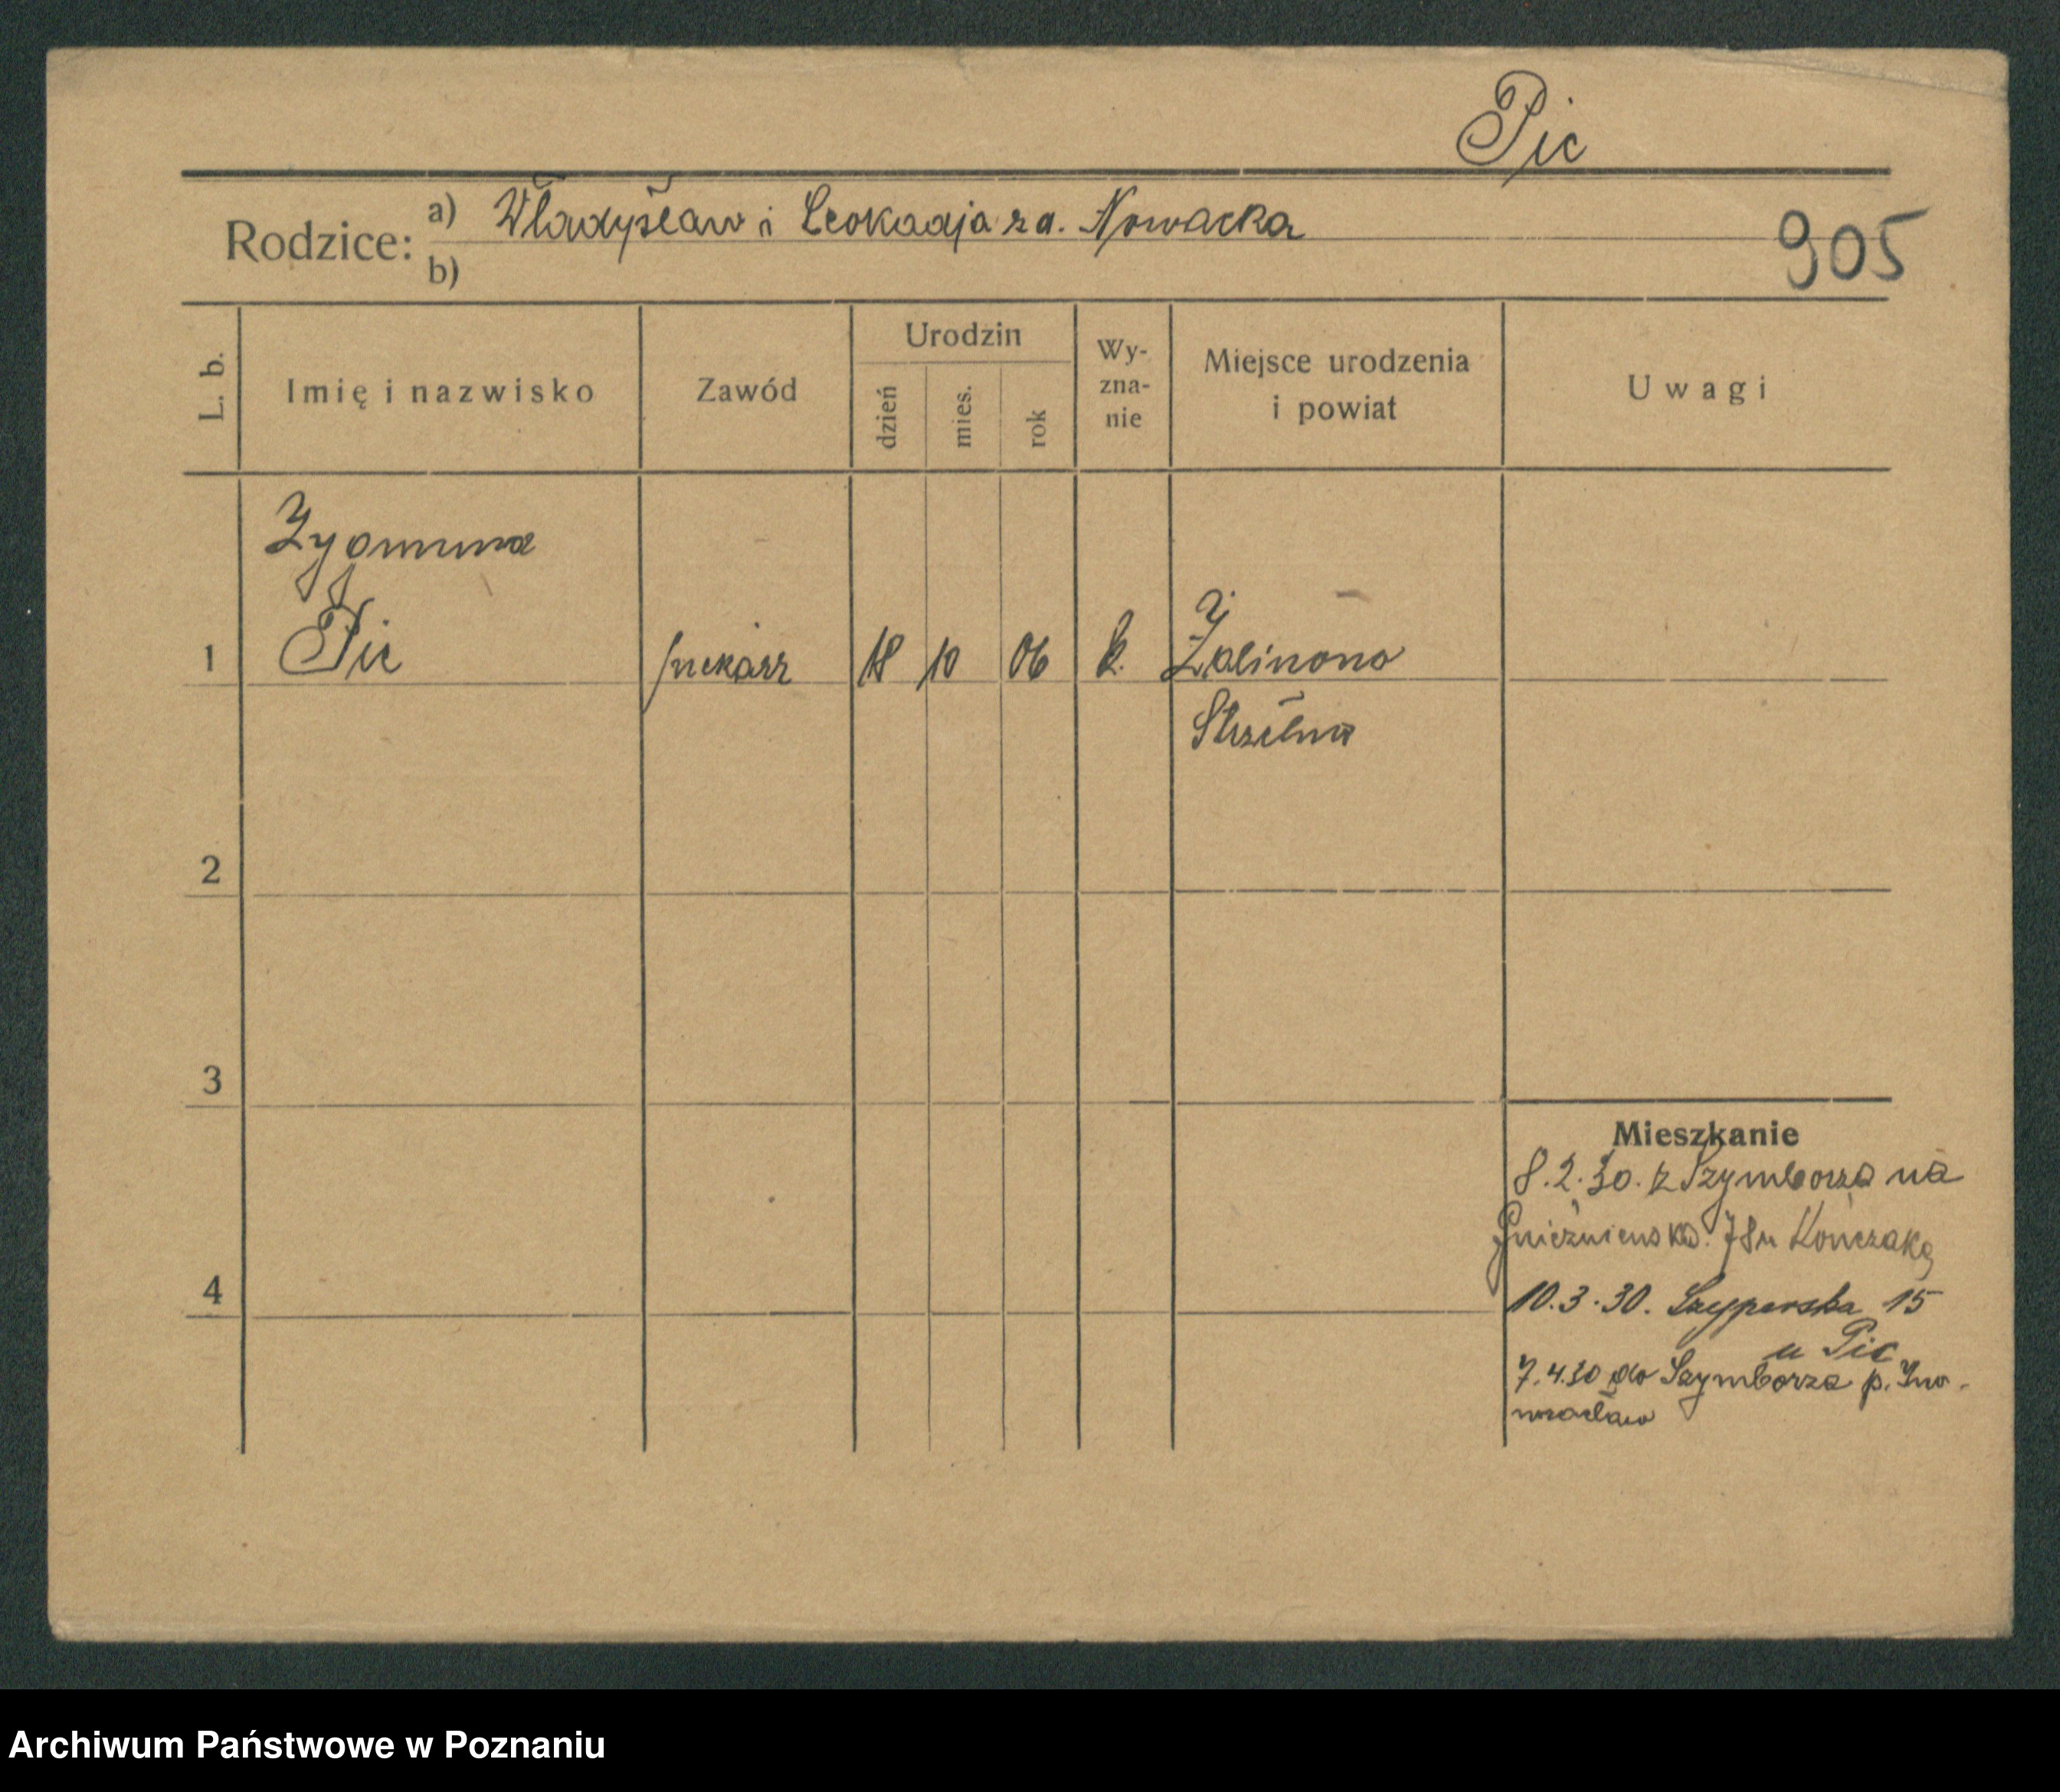 Pic
Rodzice: a) Władysław i Leokadja za. Nowacka
905
b)
L. b. Imię i nazwisko Zawód Urodzin dzień mies. rok Wy-zna-nie Miejsce urodzenia i powiat Uwagi
Zygmund
1 Pic piekarz 18 10 06 k. Żalinowo
Strzelno
2
3
Mieszkanie
8.2.30. z Szymborza na
Gnieźnieńska. 78 u Kończaka
4
10.3.30. Szyperska 15
u Pic
7.4.30 do Szymborza p. Ino-
wrocław
Archiwum Państwowe w Poznaniu